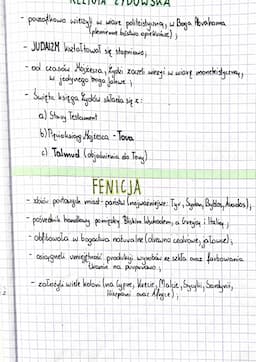 RELIGIA ŻYDOWSKA
- początkowo wierzyli w wiarę politeistyczną, w Boga Abrahama
(plemienne bóstwo opiekuńcze);
- JUDAIZM kształtował się stopniowo;
- od czasów Mojżesza, Żydzi zaczęli wierzyć w wiarę monoteistyczną,
w jedynego boga Jahwe;
- Święta księga Żydów składa się z:
a) Stary Testament
b) Pięcioksiąg Mojżesza - Tora
c) Talmud (objaśnienia do Tory)
FENICJA
- zbiór portowych miast-państw (najważniejsze: Tyr, Sydon, Byblos, Arados);
- pośrednik handlowy pomiędzy Bliskim Wschodem, a Grecją i Italią;
- obfitowała w bogactwa naturalne (drewno cedrowe, jałowiec);
- osiągnęli umiejętność produkcji wyrobów ze szkła oraz farbowania
tkanin na purpurowo;
- założyli wiele kolonii (na Cyprze, Krecie, Malcie, Sycylii, Sardynii,
Hiszpanii oraz Afryce);